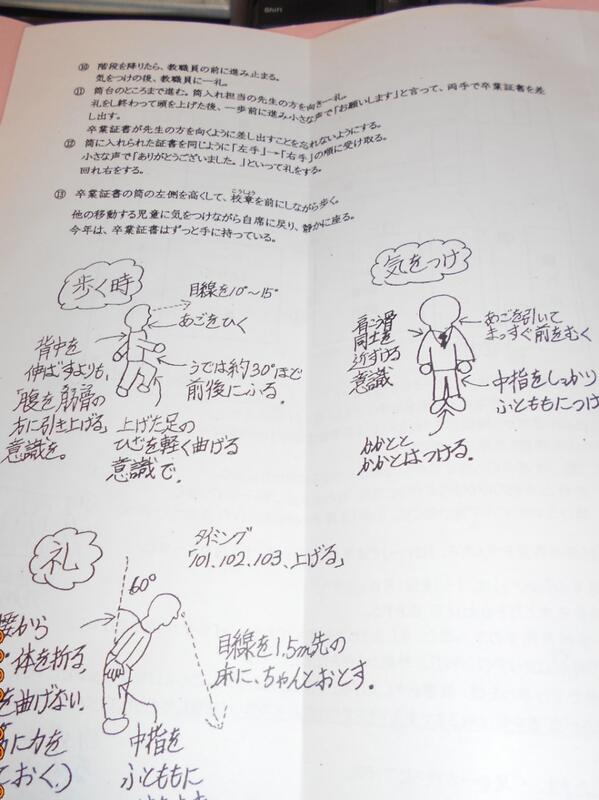 Shift
⑩ 階段を降りたら、教職員の前に進み止まる。
気をつけの後、教職員に一礼。
⑪ 筒台のところまで進む。筒入れ担当の先生の方を向き一礼。
礼をし終わって頭を上げた後、一歩前に進み小さな声で「お願いします」と言って、両手で卒業証書を差
し出す。
卒業証書が先生の方を向くように差し出すことを忘れないようにする。
⑫ 筒に入れられた証書を同じように「左手」→「右手」の順に受け取る。
小さな声で「ありがとうございました。」といって礼をする。
回れ右をする。
⑬ 卒業証書の筒の左側を高くして、校章を前にしながら歩く。
こうしょう
他の移動する児童に気をつけながら自席に戻り、静かに座る。
今年は、卒業証書はずっと手に持っている。
歩く時
目線を10°~15°
あごをひく
背中を
伸ばすよりも、
「腹を肋骨の
方に引き上げる」
意識を。
うでは約30°ほど
前後にふる。
上げた足の
ひざを軽く曲げる
意識で。
気をつけ
肩こう骨
同士を
近ずける
意識
あごを引いて
まっすぐ前をむく
中指をしっかり
ふとももにつけ
かかとと
かかとはつける。
礼
タイミング
「101、102、103、上げる」
60°
腰から
体を折る。
を曲げない。
に力を
ておく。)
目線を1.5m先の
床に、ちゃんとおとす。
中指を
ふとももに